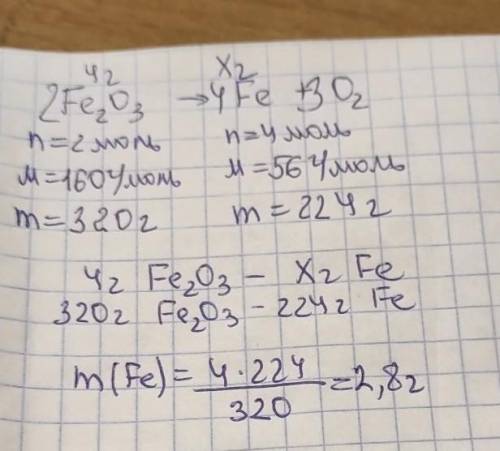 4г Xг
2Fe₂O₃ → 4Fe + 3O₂
n = 2 моль n = 4 моль
M = 160 г/моль M = 56 г/моль
m = 320г m = 224г
4г Fe₂O₃ – Xг Fe
320г Fe₂O₃ – 224г Fe
m(Fe) = 4·224 / 320 = 2,8г